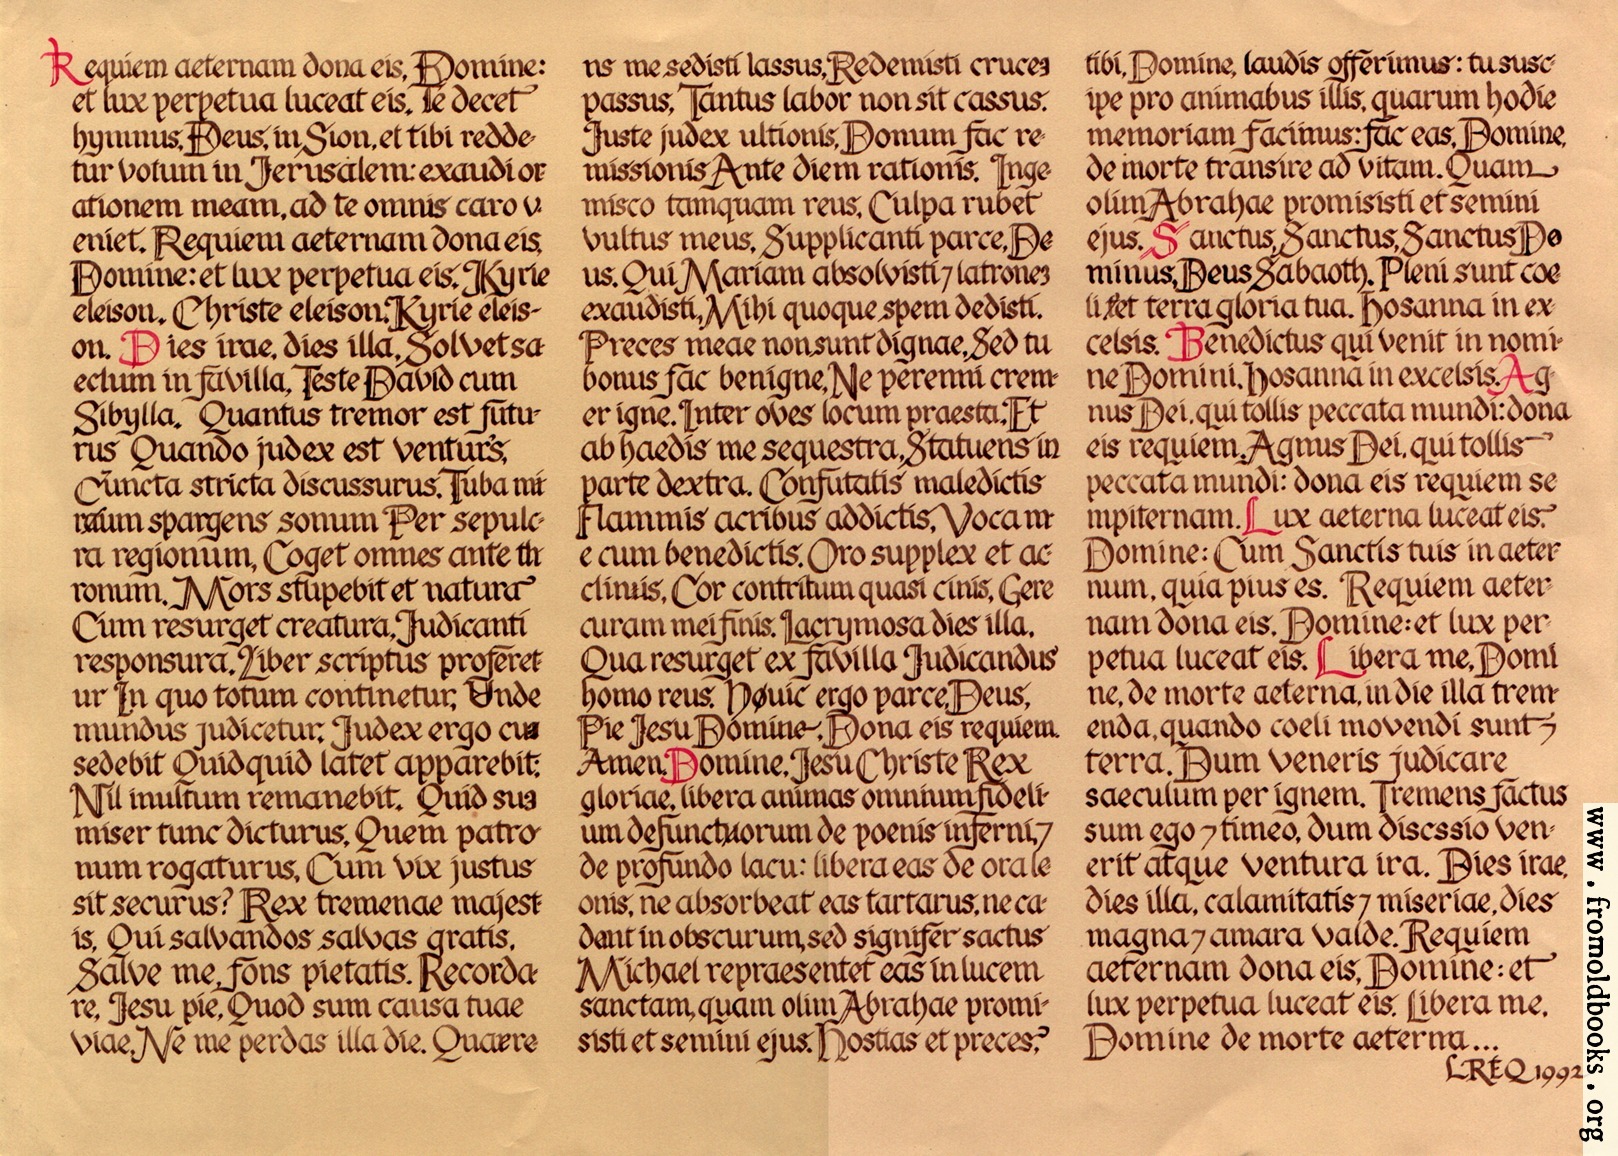 Requiem aeternam dona eis, Domine:
et lux perpetua luceat eis. Te decet
hymnus, Deus, in Sion, et tibi redde-
tur votum in Jerusalem: exaudi or
ationem meam, ad te omnis caro v
eniet. Requiem aeternam dona eis,
Domine: et lux perpetua eis. Kyrie
eleison. Christe eleison. Kyrie eleis-
on. Dies irae, dies illa, Solvet sa
eclum in favilla, Teste David cum
Sibylla. Quantus tremor est futu-
rus Quando judex est venturs,
Cuncta stricta discussurus. Tuba mi
rum spargens sonum Per sepulc-
ra regionum, Coget omnes ante th
ronum. Mors stupebit et natura
Cum resurget creatura, Judicanti
responsura. Liber scriptus proferet
ur In quo totum continetur, Unde
mundus judicetur. Judex ergo cum
sedebit Quidquid latet apparebit:
Nil inultum remanebit. Quid sum
miser tunc dicturus, Quem patro-
num rogaturus, Cum vix justus
sit securus? Rex tremenae majest
is, Qui salvandos salvas gratis,
Salve me, fons pietatis. Recorda-
re, Jesu pie, Quod sum causa tuae
viae, Ne me perdas illa die. Quaere
ns me sedisti lassus, Redemisti cruces
passus, Tantus labor non sit cassus.
Juste judex ultionis, Donum fac re-
missionis Ante diem rationis. Inge-
misco tamquam reus, Culpa rubet
vultus meus, Supplicanti parce, De
us. Qui Mariam absolvisti ⁊ latrones
exaudisti, Mihi quoque spem dedisti.
Preces meae non sunt dignae, Sed tu
bonus fac benigne, Ne perenni crem-
er igne. Inter oves locum praesta, Et
ab haedis me sequestra, Statuens in
parte dextra. Confutatis maledictis
Flammis acribus addictis, Voca m
e cum benedictis. Oro supplex et ac-
clinis, Cor contritum quasi cinis, Gere
curam mei finis. Lacrymosa dies illa,
Qua resurget ex favilla Judicandus
homo reus. Huic ergo parce, Deus,
Pie Jesu Domine, Dona eis requiem.
Amen. Domine, Jesu Christe Rex
gloriae, libera animas omnium fideli-
um defunctuorum de poenis inferni, ⁊
de profundo lacu: libera eas de ora le
onis, ne absorbeat eas tartarus, ne ca-
dant in obscurum, sed signifer sactus
Michael repraesentet eas in lucem
sanctam, quam olim Abrahae promi-
sisti et semini ejus. Hostias et preces,
tibi, Domine, laudis offerimus: tu susc-
ipe pro animabus illis, quarum hodie
memoriam facimus: fac eas, Domine,
de morte transire ad vitam. Quam
olim Abrahae promisisti et semini
ejus. Sanctus, Sanctus, Sanctus Do
minus, Deus Sabaoth. Pleni sunt coe
li et terra gloria tua. Hosanna in ex-
celsis. Benedictus qui venit in nomi-
ne Domini. Hosanna in excelsis. Ag-
nus Dei, qui tollis peccata mundi: dona
eis requiem. Agnus Dei, qui tollis
peccata mundi: dona eis requiem se
mpiternam. Lux aeterna luceat eis,
Domine: Cum Sanctis tuis in aeter
num, quia pius es. Requiem aeter-
nam dona eis, Domine: et lux per-
petua luceat eis. Libera me, Domi
ne, de morte aeterna, in die illa trem-
enda, quando coeli movendi sunt ⁊
terra. Dum veneris judicare
saeculum per ignem. Tremens factus
sum ego ⁊ timeo, dum discssio ven-
erit atque ventura ira. Dies irae,
dies illa, calamitatis ⁊ miseriae, dies
magna ⁊ amara valde. Requiem
aeternam dona eis, Domine: et
lux perpetua luceat eis. Libera me,
Domine de morte aeterna...
LREQ 1992
www.fromoldbooks.org